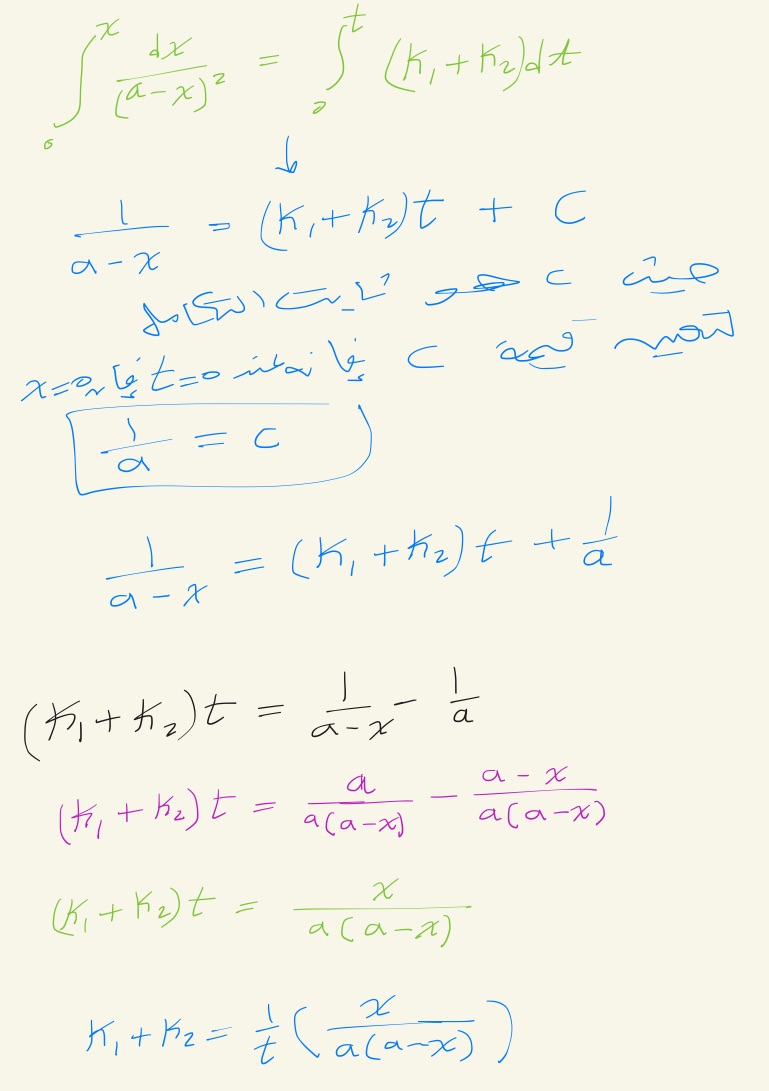 ∫₀ˣ dx/(a-x)² = ∫₀ᵗ (K₁+K₂)dt
↓
1/(a-x) = (K₁+K₂)t + C
حيث C هو ثابت التكامل
لتعيين قيمة C فإنه عند t=0 فإن x=0
1/a = C
1/(a-x) = (K₁+K₂)t + 1/a
(K₁+K₂)t = 1/(a-x) - 1/a
(K₁+K₂)t = a/(a(a-x)) - (a-x)/(a(a-x))
(K₁+K₂)t = x/(a(a-x))
K₁+K₂ = 1/t (x/(a(a-x)))